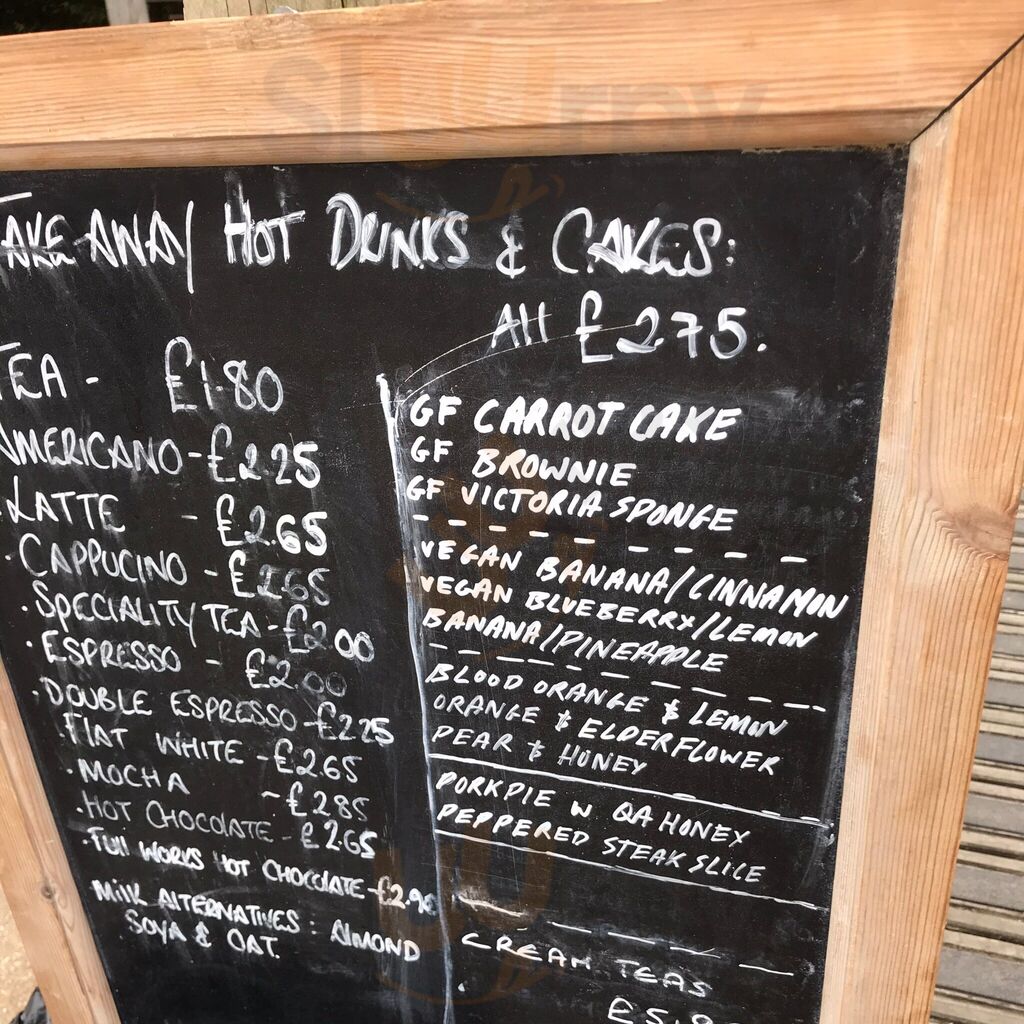 TAKE AWAY HOT DRINKS & CAKES:
All £2.75.
TEA - £1.80
AMERICANO - £2.25
LATTE - £2.65
CAPPUCINO - £2.65
SPECIALITY TEA - £2.00
ESPRESSO - £2.00
DOUBLE ESPRESSO - £2.25
FLAT WHITE - £2.65
MOCHA - £2.85
HOT CHOCOLATE - £2.65
FULL WORKS HOT CHOCOLATE - £2.90
MILK ALTERNATIVES: ALMOND
SOYA & OAT.
GF CARROT CAKE
GF BROWNIE
GF VICTORIA SPONGE
VEGAN BANANA/CINNAMON
VEGAN BLUEBERRY/LEMON
BANANA/PINEAPPLE
BLOOD ORANGE & LEMON
ORANGE & ELDERFLOWER
PEAR & HONEY
PORKPIE W QA HONEY
PEPPERED STEAK SLICE
CREAM TEAS